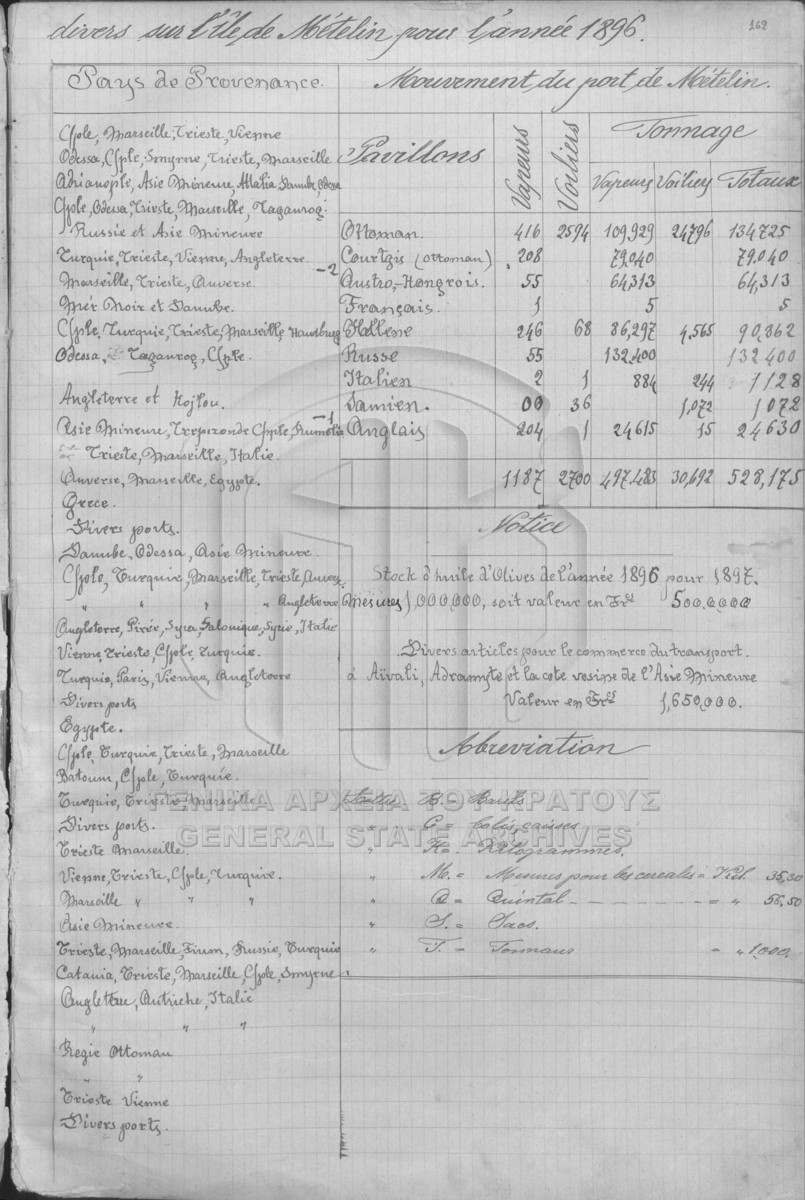 divers sur l'île de Mételin pour l'année 1896.
162
Pays de Provenance.
Cple, Marseille, Trieste, Vienne
Odessa, Cple, Smyrne, Trieste, Marseille
Adrianople, Asie Mineure, Danube, Odessa
Cple, Odessa, Trieste, Marseille, Taganrog.
Russie et Asie Mineure
Turquie, Trieste, Vienne, Angleterre
Marseille, Trieste, Anverse.
Mer Noir et Danube.
Cple, Turquie, Trieste, Marseille, Hambourg
Odessa, Taganrog, Cple.
Angleterre et
Asie Mineure, Trepizonde Cple, Rumelie
Trieste, Marseille, Italie.
Anverse, Marseille, Egypte.
Grece.
Divers ports.
Danube, Odessa, Asie Mineure
Cple, Turquie, Marseille, Trieste, Anver.
" " " " Angleterre
Angleterre, Pirée, Syra, Salonique, Syrie, Italie
Vienne, Trieste, Cple, Turquie.
Turquie, Paris, Vienne, Angleterre
Divers ports
Egypte.
Cple, Turquie, Trieste, Marseille
Batoum, Cple, Turquie.
Turquie, Trieste, Marseille
Divers ports.
Trieste Marseille.
Vienne, Trieste, Cple, Turquie.
Marseille " " "
Asie Mineure.
Trieste, Marseille, Fium, Russie, Turquie
Catania, Trieste, Marseille, Cple, Smyrne
Angleterre, Autriche, Italie
" " "
Regie Ottoman
" "
Trieste Vienne
Divers ports.
Mouvement du port de Mételin.
Pavillons Vapeurs Voiliers Tonnage
Vapeurs Voiliers Totaux
Ottoman. 416 2594 109,929 24796 134725
Courtgis (ottoman) 208 79.040 79.040
-2 Austro-Hongrois. 55 64,313 64,313
Français. 1 5 5
Hellene 246 68 86,297 4,565 90,862
Russe 55 132,400 132400
Italien 2 1 884 244 1128
Samien. 00 36 1,072 1072
-1 Anglais 204 1 24615 15 24630
1187 2700 497,483 30,692 528,175
Notice
Stock d'huile d'Olives de l'année 1896 pour 1897.
Mesures 1,000,000, soit valeur en Frs 500.0000
Divers articles pour le commerce du transport.
á Aïvali, Adramyte et la cote vosine de l'Asie Mineure
Valeur en Frs 1,650,000.
Abreviation
B. = Bœufs
" C = Colis, caisses
" K = Kilogrammes.
" M. = Mesures pour les cereales = Kil. 35,80
" Q = Quintal = " 56.50
" S. = Sacs.
" T. = Tonnaus = " 1,000.
ΓΕΝΙΚΑ ΑΡΧΕΙΑ ΤΟΥ ΚΡΑΤΟΥΣ
GENERAL STATE ARCHIVES